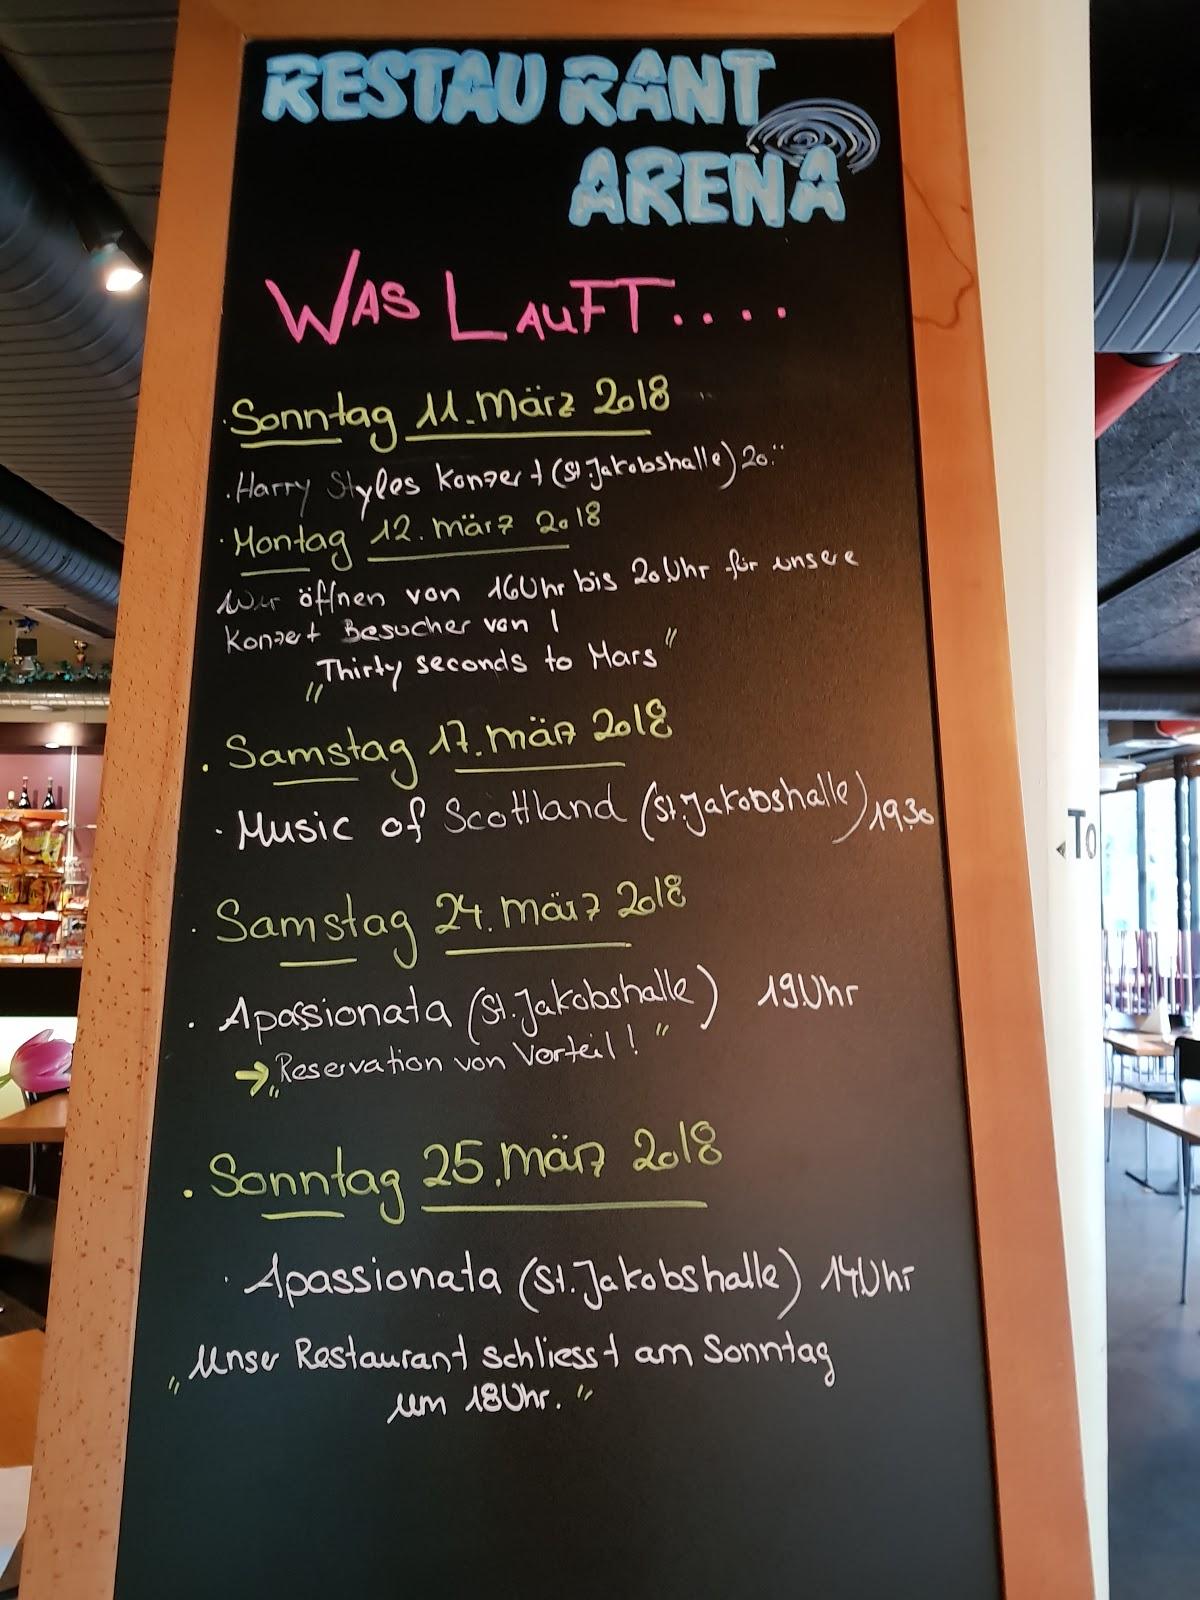 RESTAURANT
ARENA
WAS LAUFT....
· Sonntag 11. März 2018
· Harry Styles Konzert (St. Jakobshalle) 20.
· Montag 12. März 2018
Wir öffnen von 16 Uhr bis 20 Uhr für unsere
Konzert Besucher von !
„Thirty seconds to Mars"
· Samstag 17. März 2018
· Music of Scottland (St. Jakobshalle) 19.30
· Samstag 24. März 2018
· Apassionata (St. Jakobshalle) 19 Uhr
→ „Reservation von Vorteil!"
· Sonntag 25. März 2018
· Apassionata (St. Jakobshalle) 14 Uhr
„Unser Restaurant schliesst am Sonntag
um 18 Uhr."
To